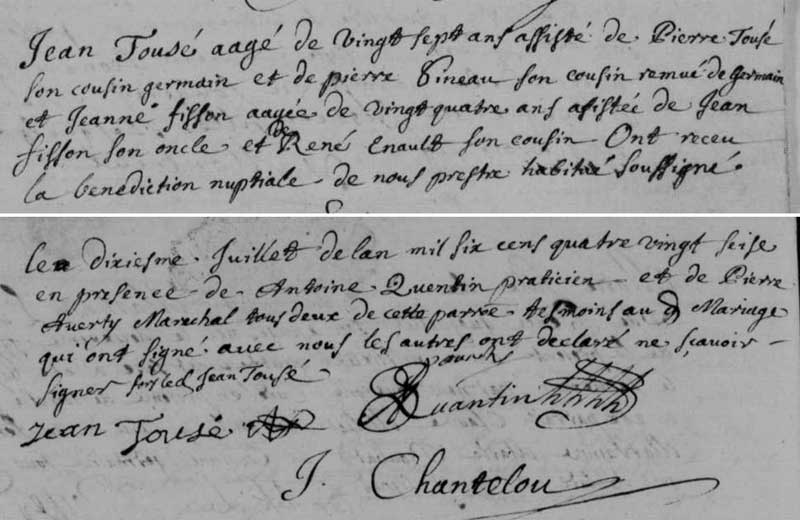 Jean Tousé aagé de vingt sept ans assisté de Pierre Tousé
son cousin germain et de pierre Pineau son cousin remué de Germain
et Jeanne fisson aagée de vingt quatre ans asistée de Jean
fisson son oncle et de René Enault son cousin. Ont receu
la benediction nuptiale de nous prestre habitué soussigné.
le dixiesme Juillet de lan mil six cens quatre vingt seise
en presence de Antoine Quentin praticien et de Pierre
Averty Marechal tous deux de cette parroe tesmoins au d Mariage
qui ont signé avec nous les autres ont declaré ne sçavoir
signer fors led Jean Tousé
Jean Tousé
Quantin
J. Chantelou